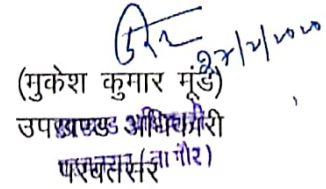 27/2/2020
(मुकेश कुमार मूंड)
उपखण्ड अधिकारी
परबतसर (नागौर)